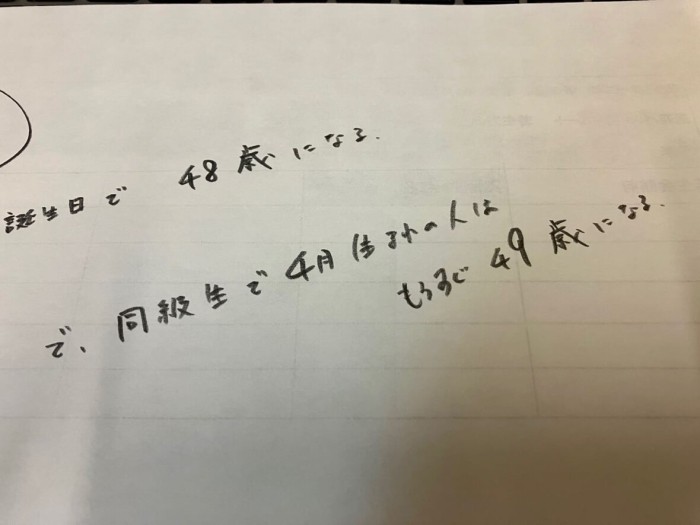 誕生日で 48歳になる.
で、同級生で4月生まれの人は
もうすぐ 49歳になる.